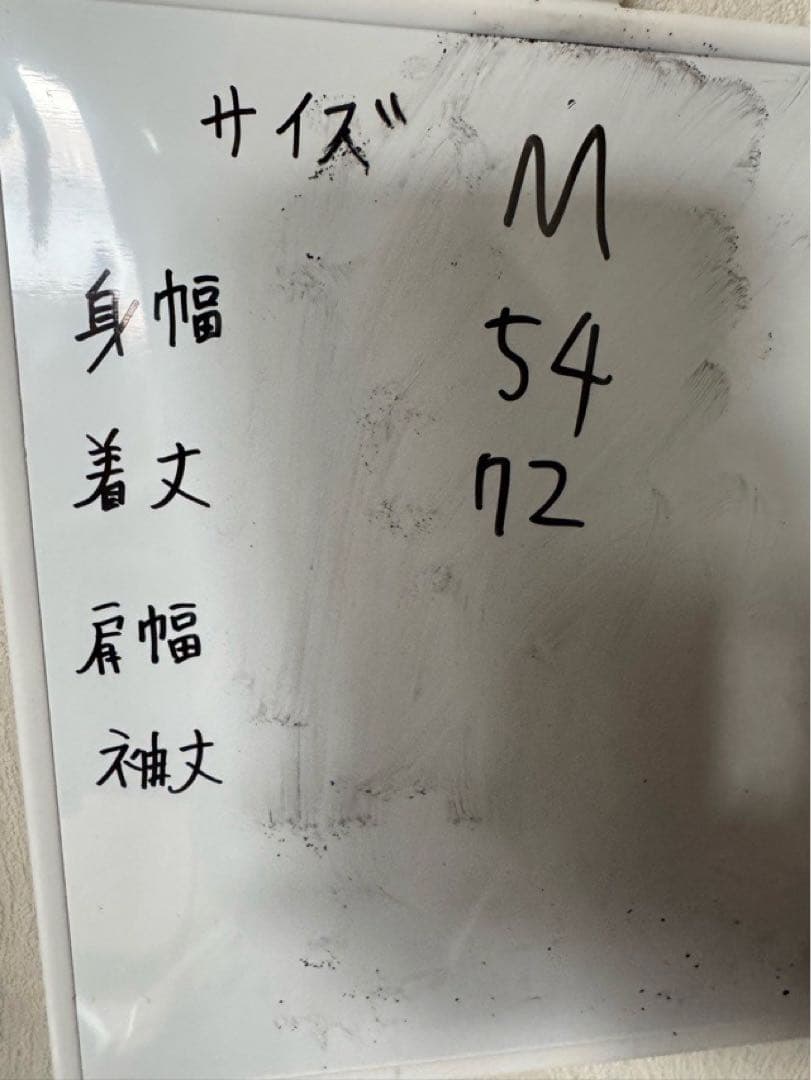 サイズ M
身幅 54
着丈 72
肩幅
袖丈